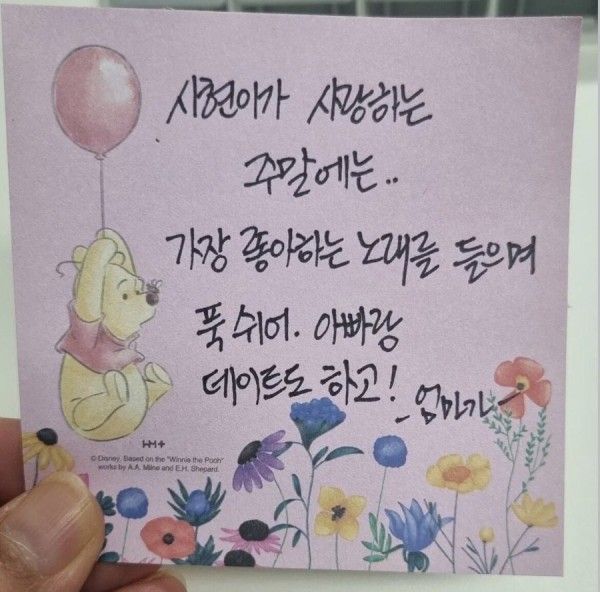 사현이가 사랑하는
주말에는..
가장 좋아하는 노래를 들으며
푹 쉬어. 아빠랑
데이트도 하고! - 엄마가 -
WM+
© Disney. Based on the "Winnie the Pooh"
works by A.A. Milne and E.H. Shepard.